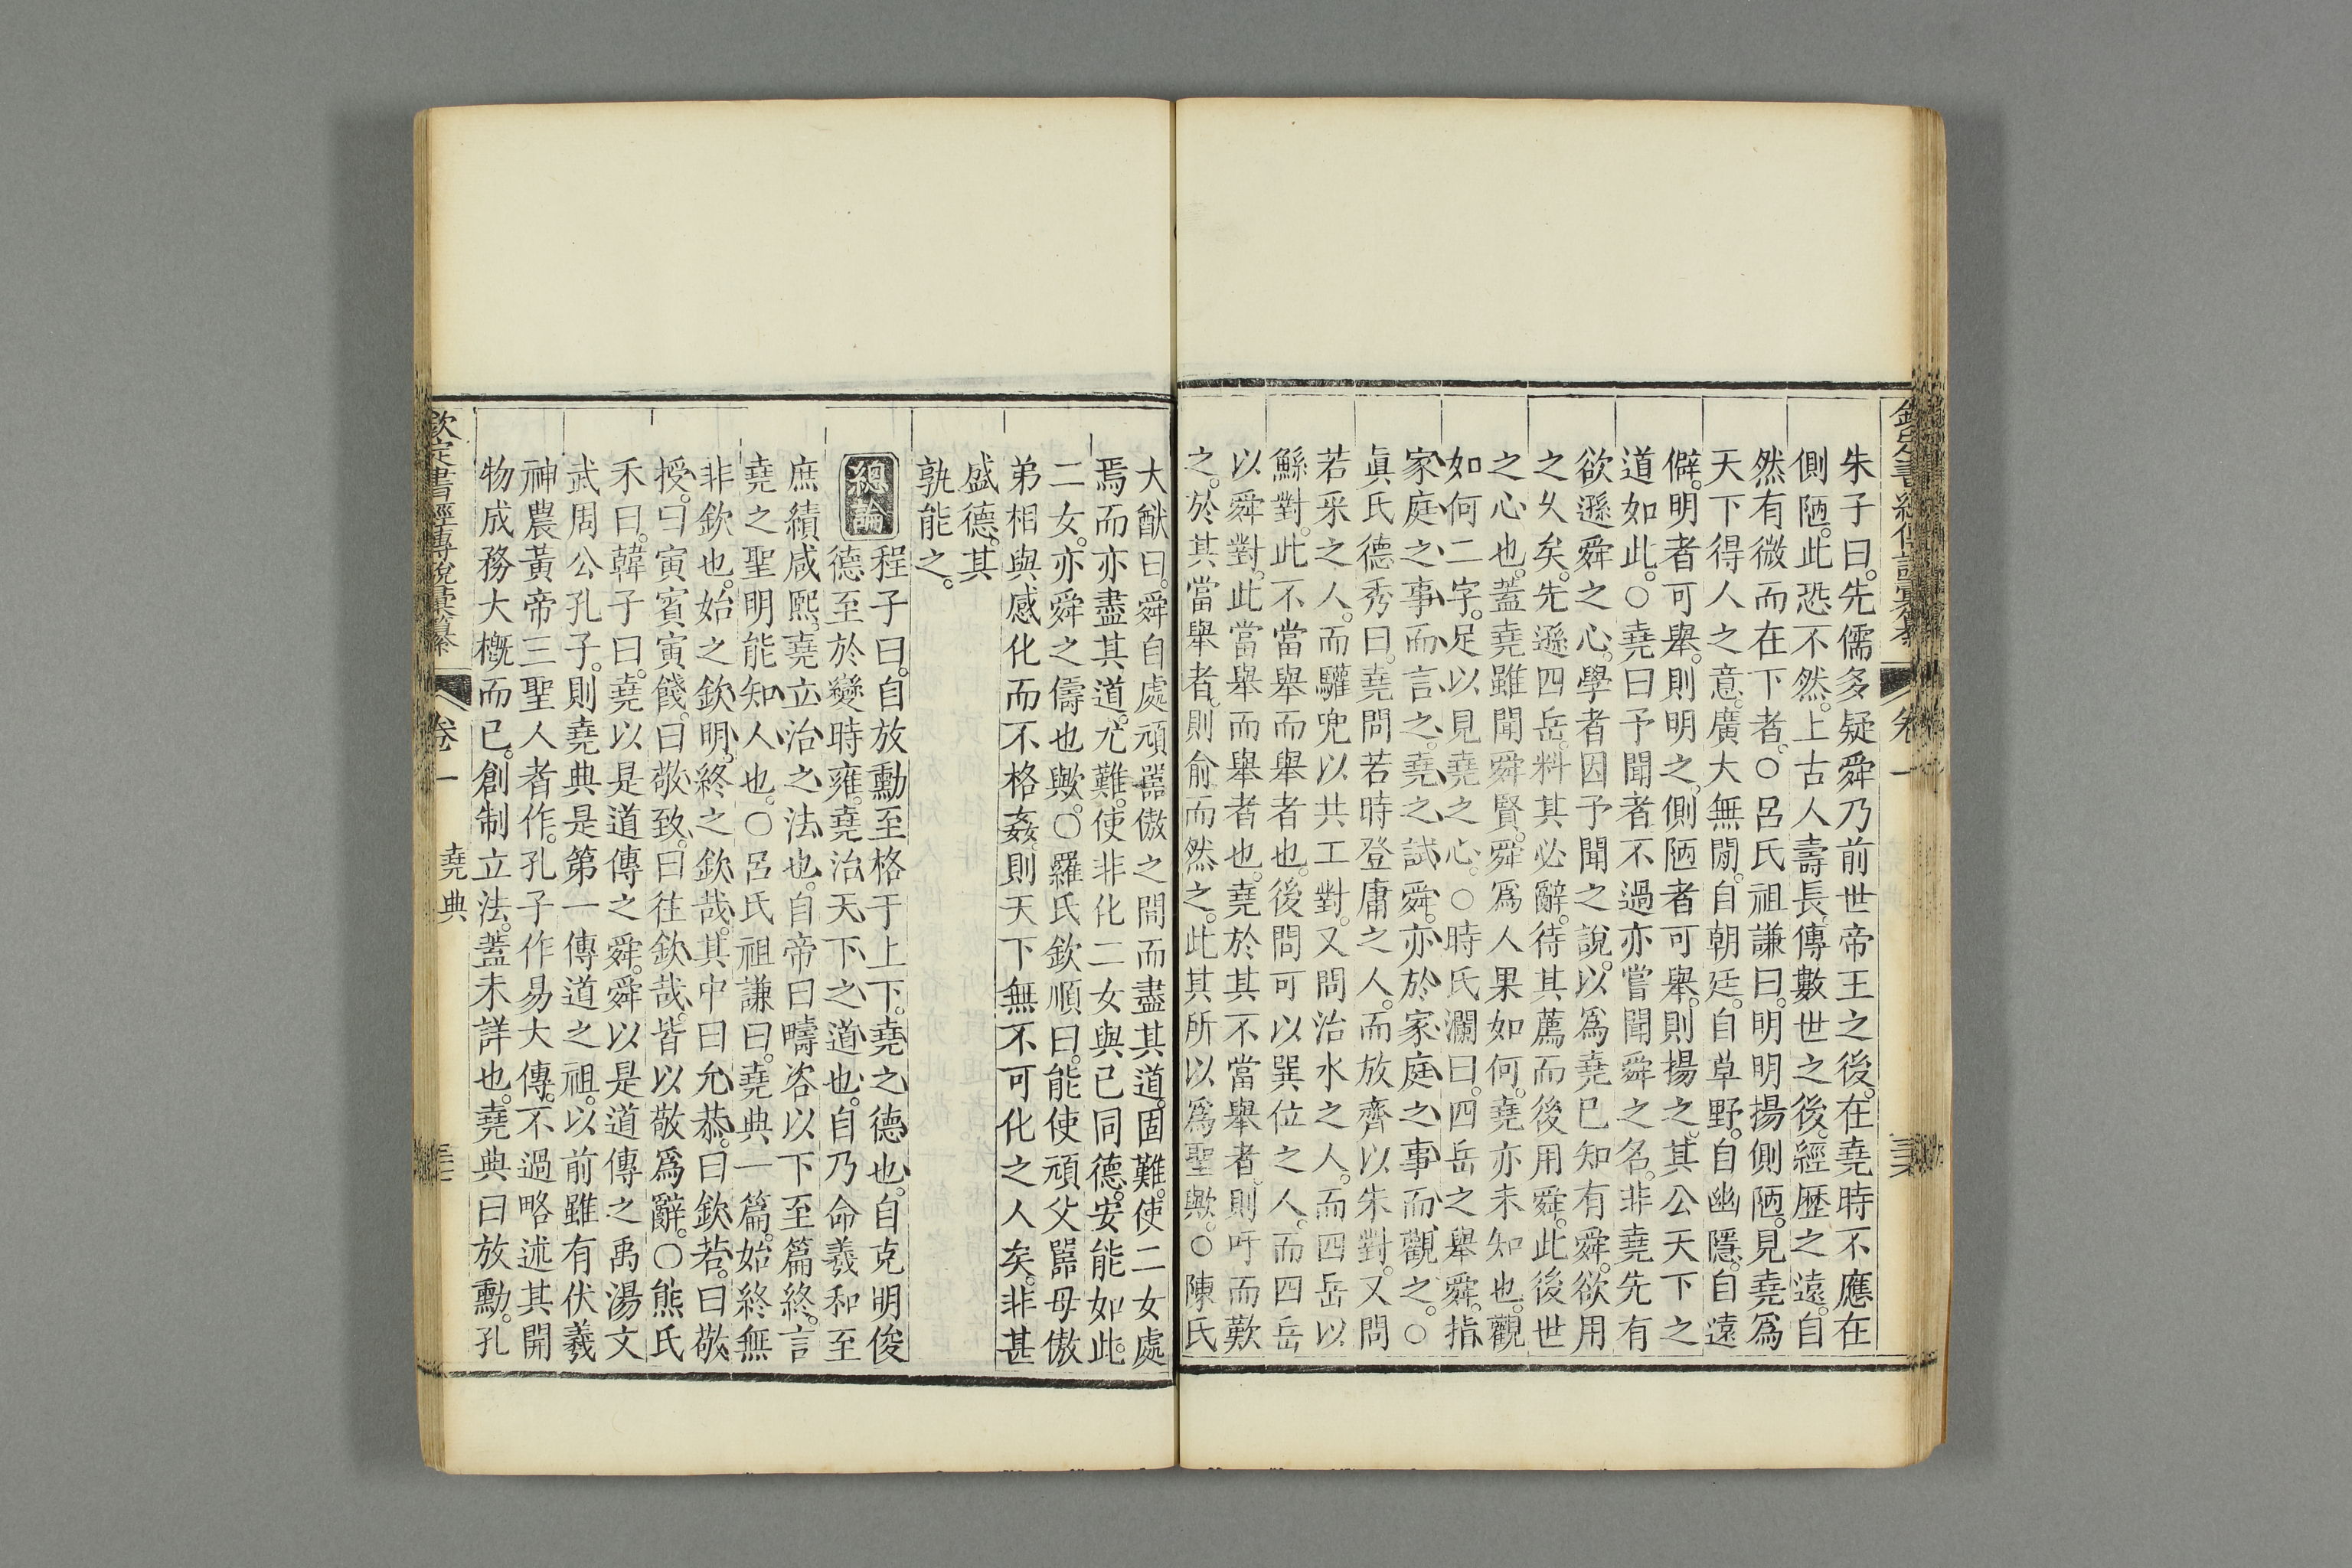 朱子曰。先儒多疑舜乃前世帝王之後。在堯時不應在
側陋。此恐不然。上古人壽長。傳數世之後。經歷之遠。自
然有微而在下者。○呂氏祖謙曰。明明揚側陋。見堯爲
天下得人之意。廣大無閒。自朝廷。自草野。自幽隱。自遠
僻。明者可舉。則明之。側陋者可舉。則揚之。其公天下之
道如此。○堯曰予聞者。不過亦嘗聞舜之名。非堯先有
欲遜舜之心。學者因予聞之說。以爲堯已知有舜。欲用
之乆矣。先遜四岳。料其必辭。待其薦而後用舜。此後世
之心也。蓋堯雖聞舜賢。舜爲人果如何。堯亦未知也。觀
如何二字。足以見堯之心。○時氏瀾曰。四岳之舉舜。指
家庭之事而言之。堯之試舜。亦於家庭之事而觀之。○
眞氏德秀曰。堯問若時登庸之人。而放齊以朱對。又問
若采之人。而驩兜以共工對。又問治水之人。而四岳以
鯀對。此不當舉而舉者也。後問可以巽位之人。而四岳
以舜對。此當舉而舉者也。堯於其不當舉者。則吁而歎
之。於其當舉者。則俞而然之。此其所以爲聖歟。○陳氏
欽定書經傳說彙纂 卷一
大猷曰。舜自處頑嚚傲之閒而盡其道。固難。使二女處
焉而亦盡其道。尤難。使非化二女與已同德。安能如此。
二女。亦舜之儔也歟。○羅氏欽順曰。能使頑父嚚母傲
弟相與感化而不格姦。則天下無不可化之人矣。非甚
盛德。其
孰能之。
總論
程子曰。自放勳至格于上下。堯之德也。自克明俊
德至於變時雍。堯治天下之道也。自乃命羲和至
庶績咸熙。堯立治之法也。自帝曰疇咨以下至篇終。言
堯之聖明能知人也。○呂氏祖謙曰。堯典一篇。始終無
非欽也。始之欽明。終之欽哉。其中曰允恭。曰欽若。曰敬
授。曰寅賓寅餞。曰敬致。曰往欽哉。皆以敬爲辭。○熊氏
禾曰。韓子曰。堯以是道傳之舜。舜以是道傳之禹湯文
武周公孔子。則堯典是第一傳道之祖。以前雖有伏羲
神農黃帝三聖人者作。孔子作易大傳。不過略述其開
物成務大槪而已。創制立法。蓋未詳也。堯典曰放勳。孔
欽定書經傳說彙纂 卷一 堯典